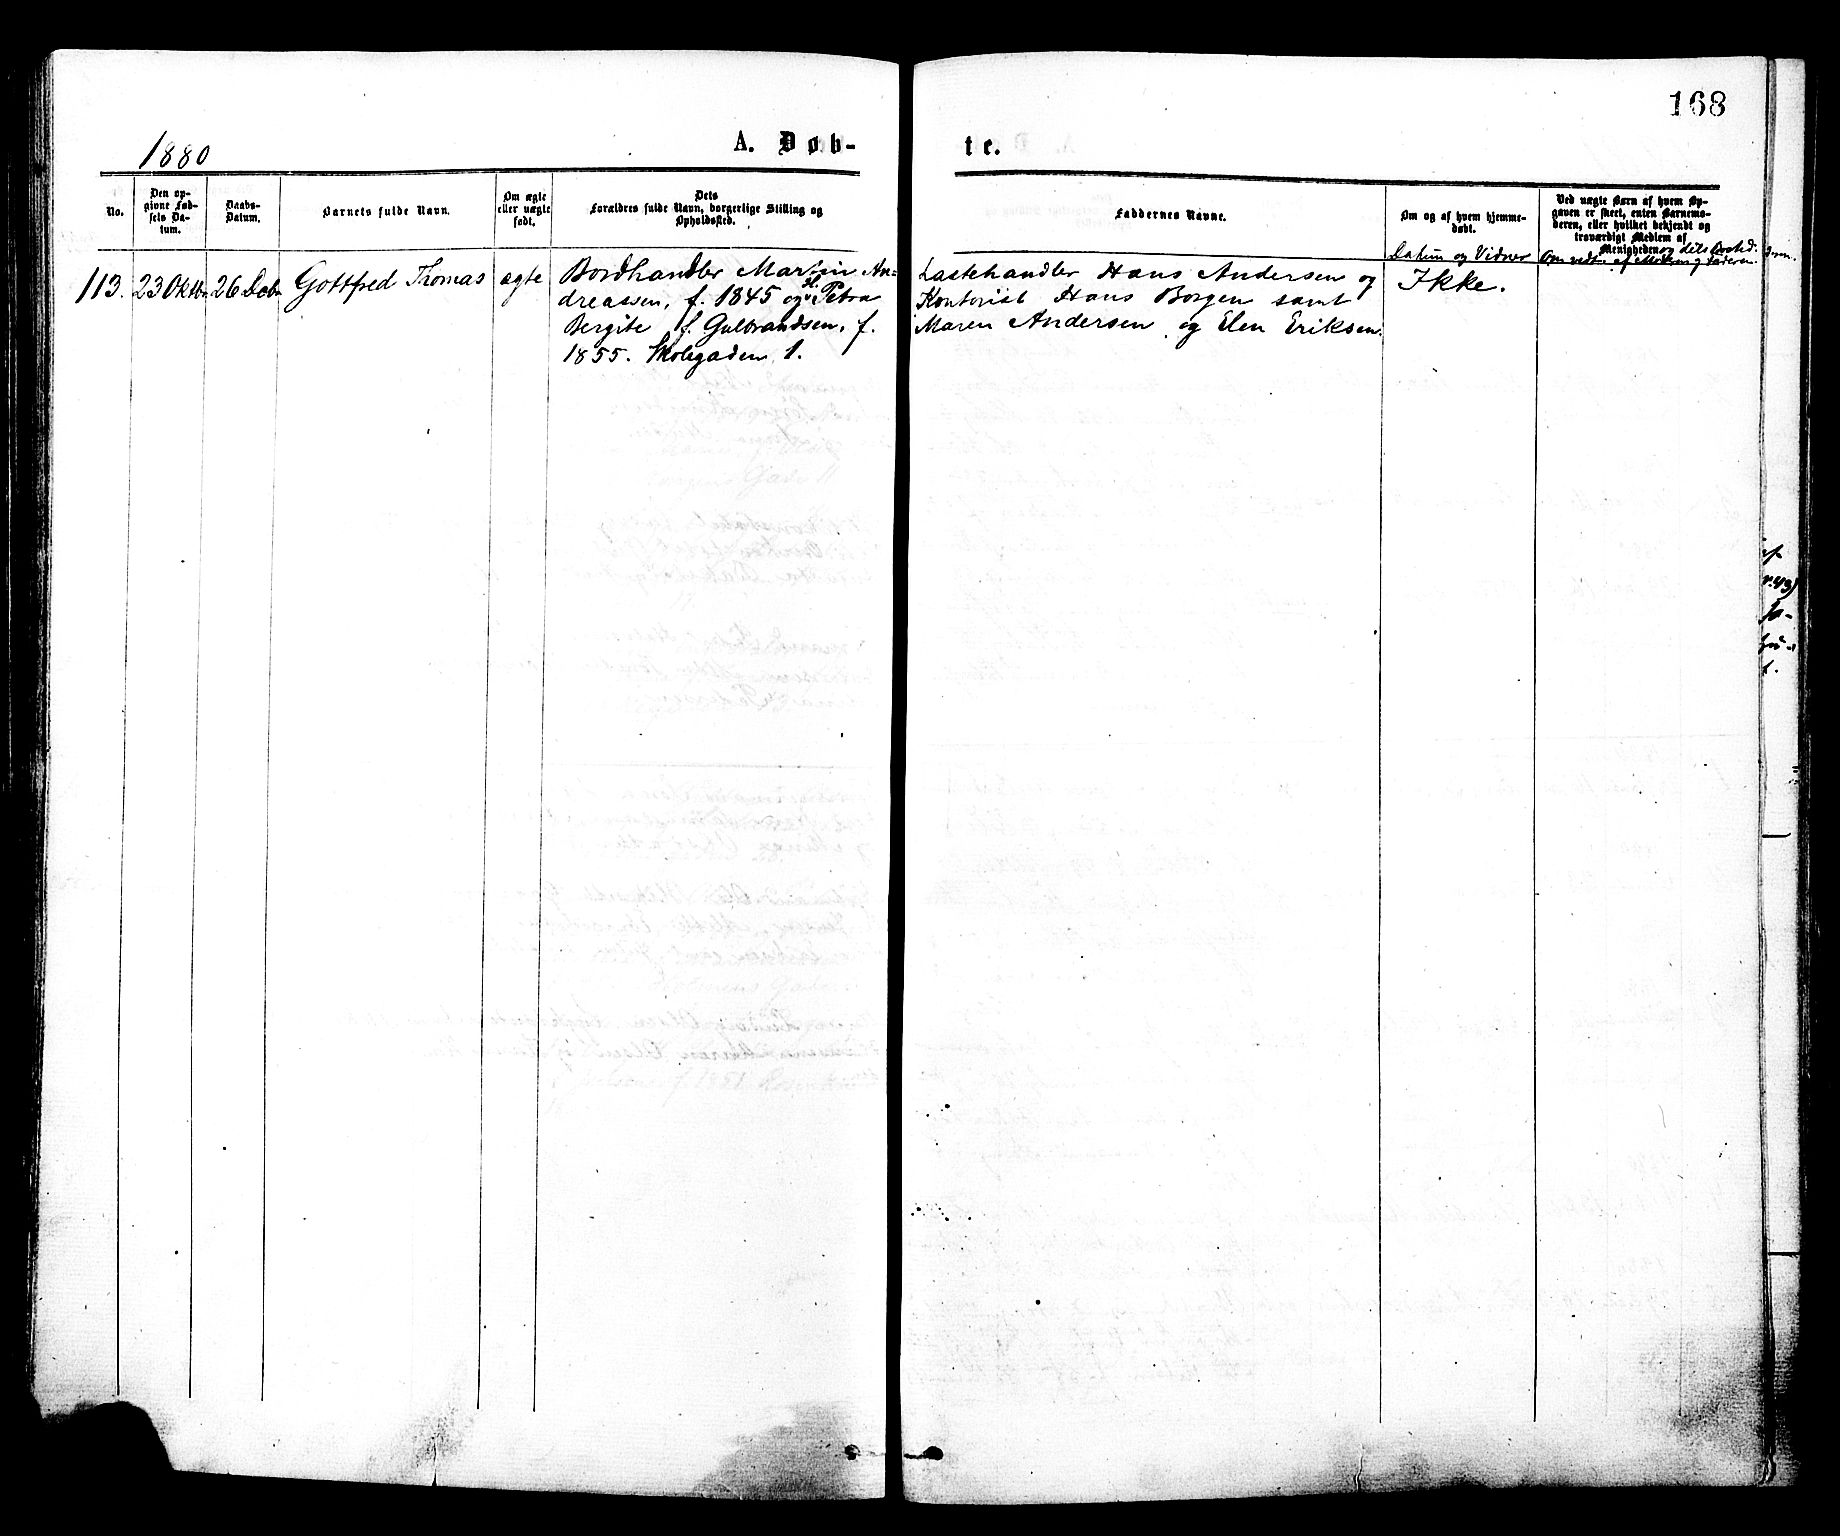 168
1880
A. Døb-
te.
No.
Den op-
givne Fød-
sels Da-
tum.
Daabs-
Datum.
Barnets fulde Navn.
Om ægte
eller uægte
født.
Dets
Forældres fulde Navn, borgerlige Stilling og
Opholdssted.
Faddernes Navne.
Om og af hvem hjemme-
døbt.
Datum og Vidner
Ved uægte Børn af hvem Op-
gaven er skeet, enten Barnemo-
deren, eller hvilket bekjendt og
troværdigt Medlem af
Menigheden
113.
23 Oktbr
26 Decbr
Gottfred Thomas
ægte
Bordhandler Martin An-
dreassen, f. 1845 og H. Petra
Bergite f. Gulbrandsen, f.
1855. Skolegaden 1.
Lastehandler Hans Andersen og
Kontorist Hans Borgen samt
Maren Andersen og Elen Eriksen.
Ikke.